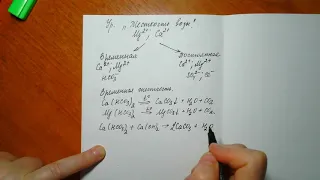 Ур. „Жесткость воды"
Mg²⁺, Ca²⁺
Временная Постоянная
Ca²⁺, Mg²⁺ Ca²⁺, Mg²⁺
HCO₃⁻ SO₄²⁻, Cl⁻
Временная жесткость.
Ca(HCO₃)₂ CaCO₃↓ + H₂O + CO₂
Mg(HCO₃)₂ MgCO₃↓ + H₂O + CO₂
Ca(HCO₃)₂ + Ca(OH)₂ → 2CaCO₃↓ H₂O